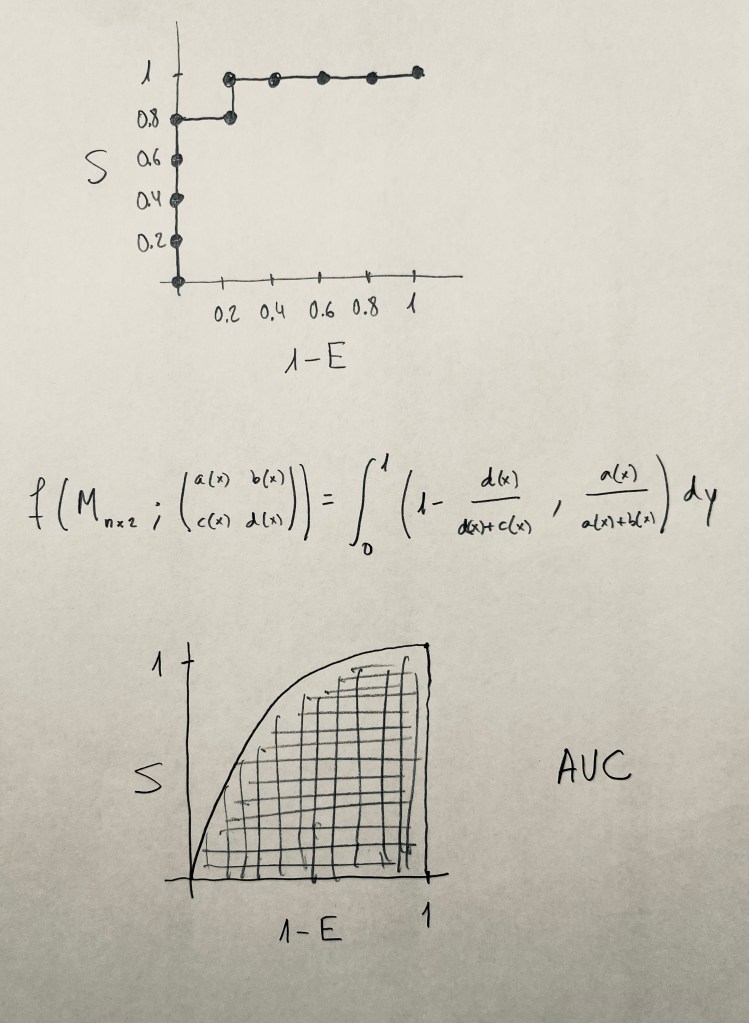 1
0.8
S 0.6
0.4
0.2
0.2 0.4 0.6 0.8 1
1-E
f(M_{n×2} ; (a(x) b(x) c(x) d(x))) = ∫_0^1 (1 - d(x)/(d(x)+c(x)) , a(x)/(a(x)+b(x))) dy
1
S
AUC
1
1-E